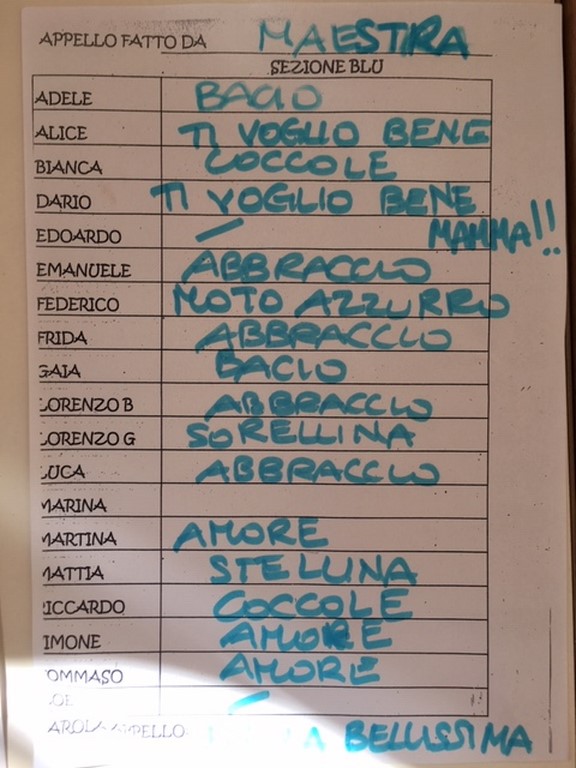 APPELLO FATTO DA MAESTRA
SEZIONE BLU
ADELE BACIO
ALICE TI VOGLIO BENE
BIANCA COCCOLE
DARIO TI VOGLIO BENE
EDOARDO / MAMMA!!
EMANUELE ABBRACCIO
FEDERICO MOTO AZZURRO
FRIDA ABBRACCIO
GAIA BACIO
LORENZO B ABBRACCIO
LORENZO G SORELLINA
LUCA ABBRACCIO
MARINA
MARTINA AMORE
MATTIA STELLINA
RICCARDO COCCOLE
SIMONE AMORE
TOMMASO AMORE
/
APPELLO BELLISSIMA